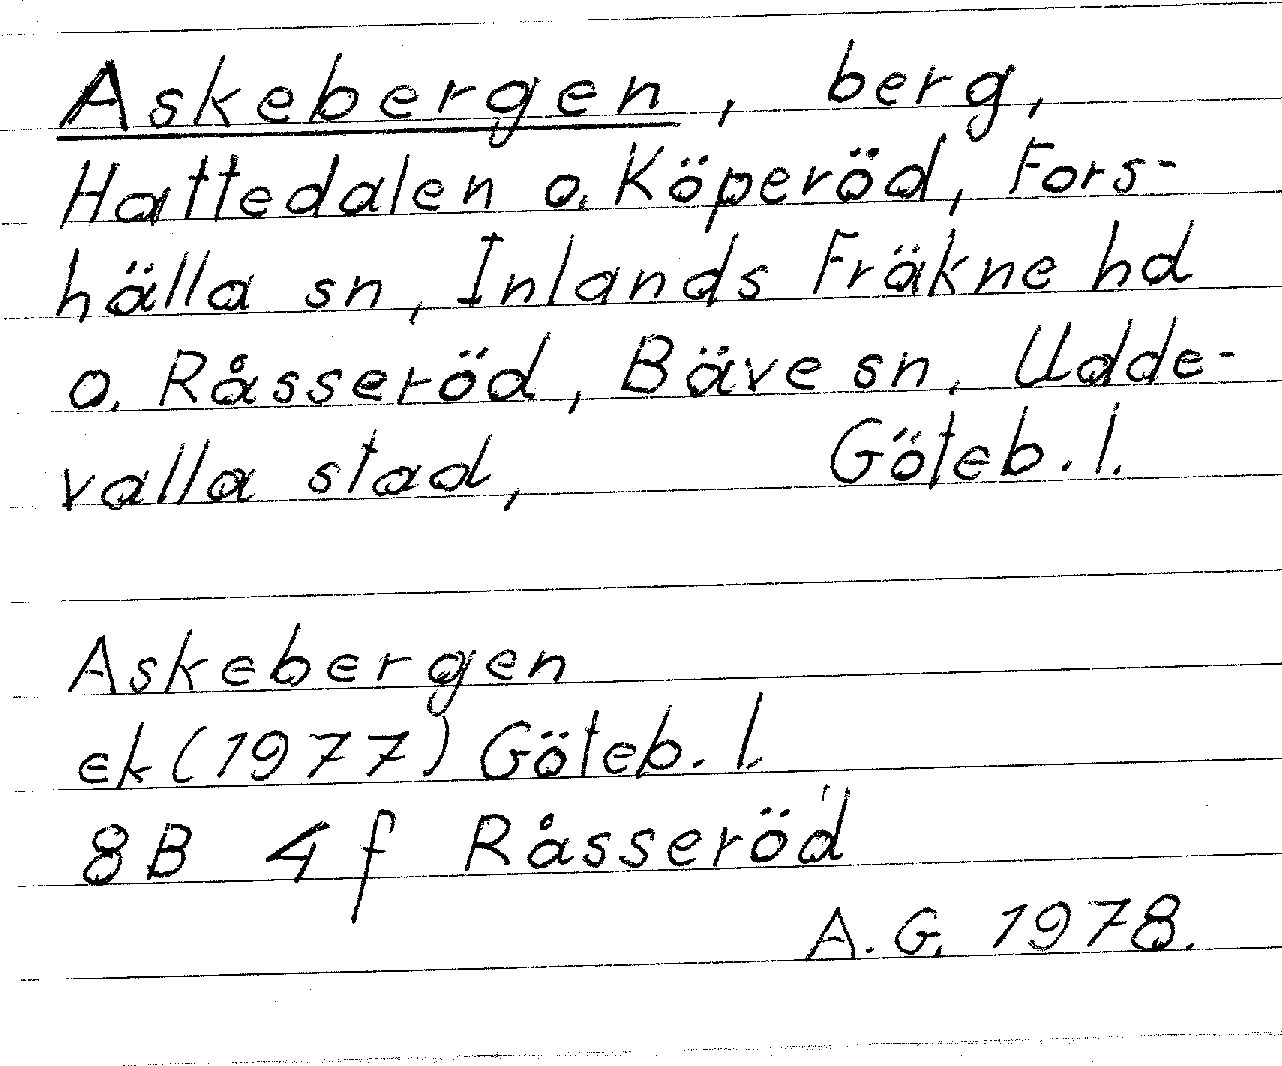 Askebergen, berg,
Hattedalen o. Köperöd, Fors-
hälla sn, Inlands Fräkne hd
o. Råsseröd, Bäve sn, Udde-
valla stad, Göteb. l.
Askebergen
ek (1977) Göteb. l.
8B 4f Råsseröd
A. G. 1978.